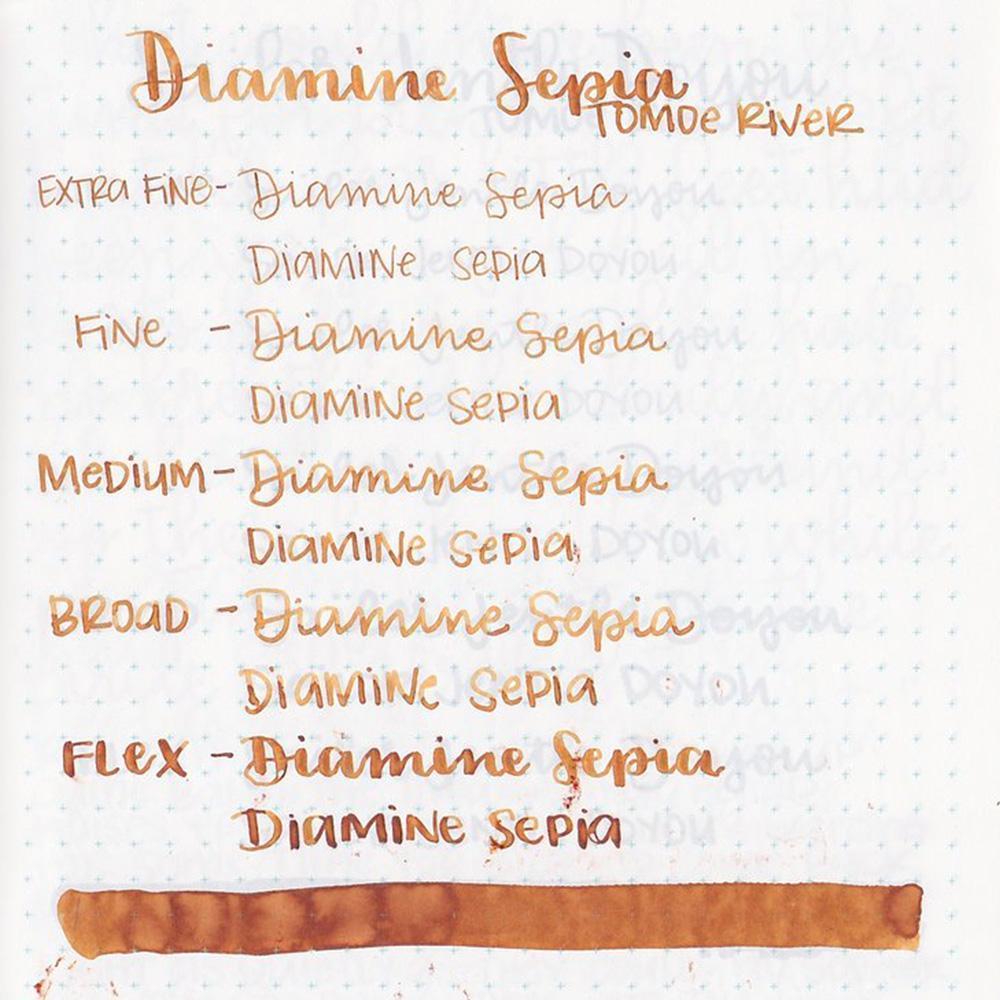 Diamine Sepia
TOMOE RIVER
EXTRA FINE - Diamine Sepia
DIAMINE SEPIA
FINE - Diamine Sepia
DIAMINE SEPIA
MEDIUM - Diamine Sepia
DIAMINE SEPIA
BROAD - Diamine Sepia
DIAMINE SEPIA
FLEX - Diamine Sepia
DIAMINE SEPIA